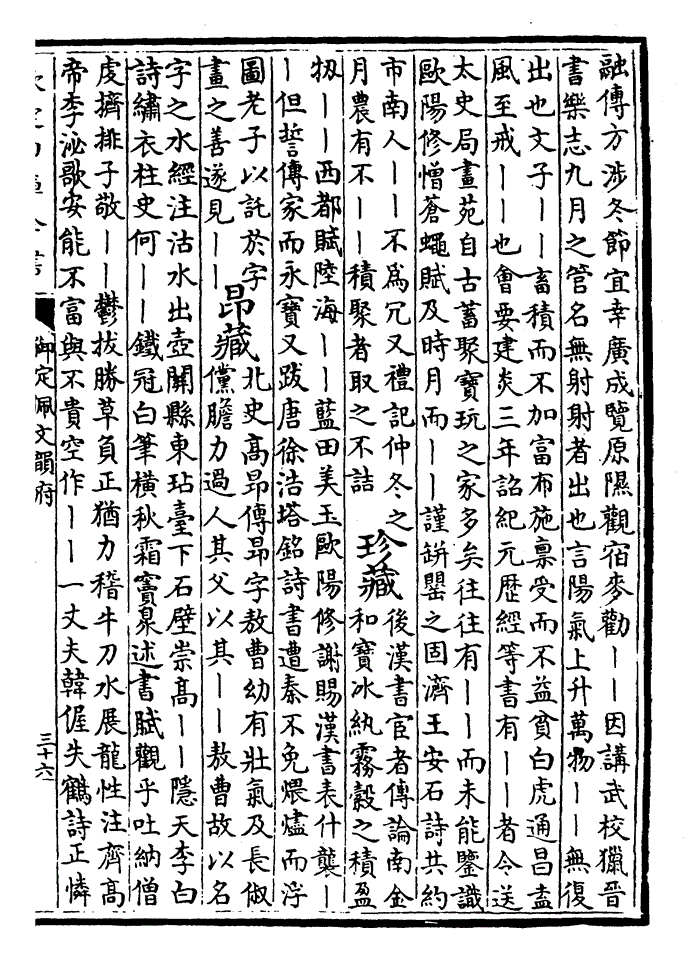 融傳方涉冬節宜幸廣成覽原隰觀宿麥勸丨丨因講武校獵晉
書樂志九月之管名無射射者出也言陽氣上升萬物丨丨無復
出也文子丨丨畜積而不加富布施禀受而不益貧白虎通昌盍
風至戒丨丨也會要建炎三年詔紀元歴經等書有丨丨者令送
太史局畫苑自古蓄聚寶玩之家多矣往往有丨丨而未能鑒識
歐陽修憎蒼蠅賦及時月而丨丨謹缾罌之固濟王安石詩共約
市南人丨丨不爲冗又禮記仲冬之
月農有不丨丨積聚者取之不詰
珍藏
後漢書宦者傳論南金
和寶冰紈霧縠之積盈
牣丨丨西都賦陸海丨丨藍田美玉歐陽修謝賜漢書表什襲丨
丨但誓傳家而永寶又跋唐徐浩塔銘詩書遭秦不免煨燼而浮
圖老子以託於字
畫之善遂見丨丨
昂藏
北史高昂傳昂字敖曹幼有壯氣及長俶
儻膽力過人其父以其丨丨敖曹故以名
字之水經注沽水出壺關縣東玷臺下石壁崇高丨丨隱天李白
詩繡衣柱史何丨丨鐵冠白筆横秋霜竇臮述書賦觀乎吐納僧
虔擠排子敬丨丨鬱拔勝草負正猶力稽牛刀水展龍性注齊高
帝李泌歌安能不富與不貴空作丨丨一丈夫韓偓失鶴詩正憐
御定佩文韻府
三十六